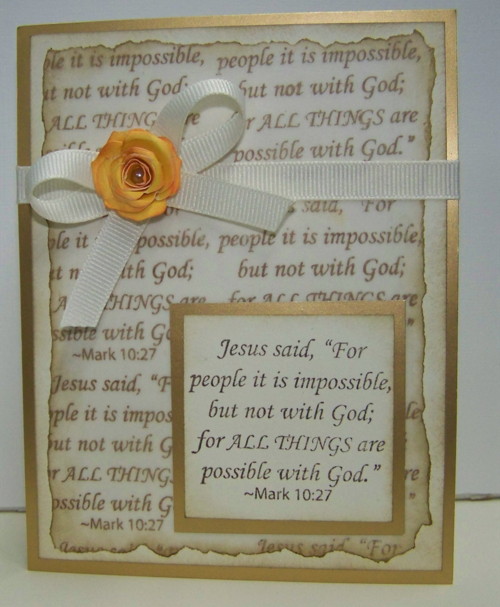 ple it is impossible, people it is impossible,
ut not with God; but not with God;
ALL THINGS are r ALL THINGS are
possible with God.”
said, “For
ple it i impossible, people it is impossible,
ut n ith God; but not with God;
A HINGS are for ALL THINGS are
ssible with Go
~Mark 10:27
Jesus said, “F
ple it is impos
ut not with G
r ALL THING
ssible with G
~Mark 10:27
Jesus said, “For
people it is impossible,
but not with God;
for ALL THINGS are
possible with God.”
~Mark 10:27
Jesus said, “For